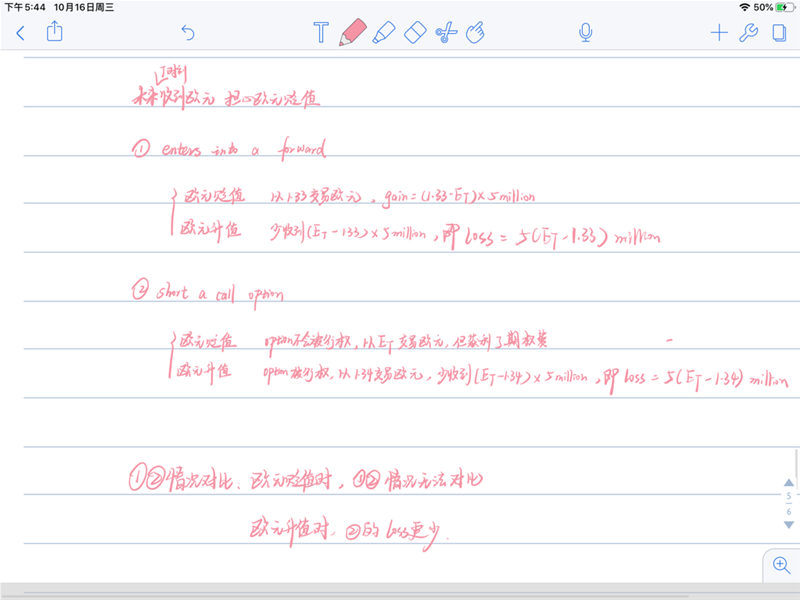 下午5:44 10月16日周三
50%
T
1时刻
未来收到欧元 担心欧元贬值
① enters into a forward
欧元贬值 以1.33交易欧元，gain=(1.33-ET)×5 million
欧元升值 少收到(ET-1.33)×5 million，即 loss = 5(ET-1.33) million
② short a call option
欧元贬值 option不会被行权，以ET交易欧元，但获利了期权费
欧元升值 option被行权，以1.34交易欧元，少收到(ET-1.34)×5 million，即 loss = 5(ET-1.34) million
①②情况对比、欧元贬值时，①②情况无法对比
欧元升值时，②的loss更少.
5
6